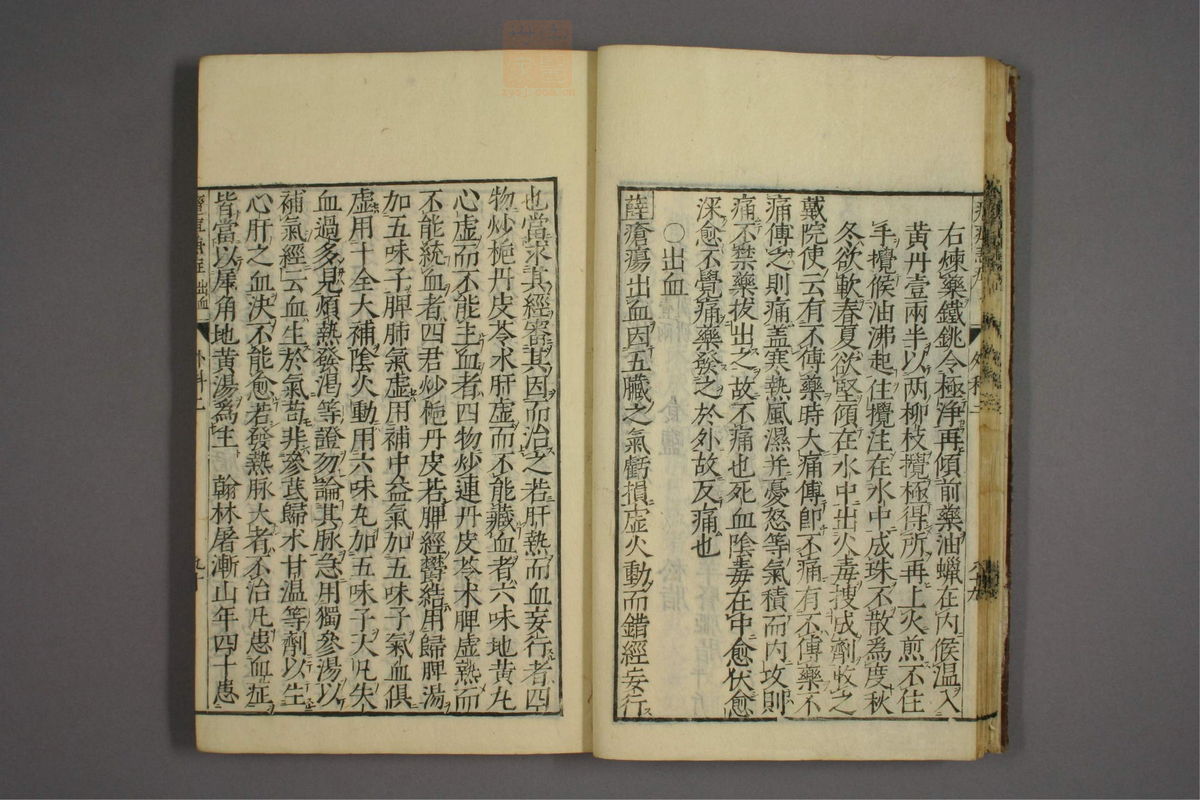 右煉藥鐵銚令極淨再傾前藥油蠟在內候温入
黃丹壹兩半以兩柳枝攪極得所再上火煎不住
手攪候油沸起住攪注在水中成珠不散爲度秋
冬欲軟春夏欲堅傾在水中出火毒搜成劑收之
戴院使云有不傅藥時大痛傅卽不痛有不傅藥不
痛傅之則痛盖寒熱風濕并憂怒等氣積而内攻則
痛不禁藥拔出之故不痛也死血陰毒在中愈伏愈
深愈不覺痛藥發之於外故反痛也
〇出血
薛瘡瘍出血因五臟之氣虧損虛火動而錯經妄行
也當求其經審其因而治之若肝熱而血妄行者四
物炒梔丹皮苓朮肝虛而不能藏血者六味地黄丸
心虛而不能主血者四物炒連丹皮苓朮脾虛熱而
不能統血者四君炒梔丹皮若脾經鬱結用歸脾湯
加五味子脾肺氣虛用補中益氣加五味子氣血俱
虛用十全大補陰火動用六味丸加五味子大凡失
血過多見煩熱發渴等證勿論其脉急用獨參湯以
補氣經云血生於氣苟非參芪歸朮甘温等劑以生
心肝之血決不能愈若發熱脉大者不治凡患血症
皆當以犀角地黄湯爲主 翰林屠漸山年四十患
出血
外科二